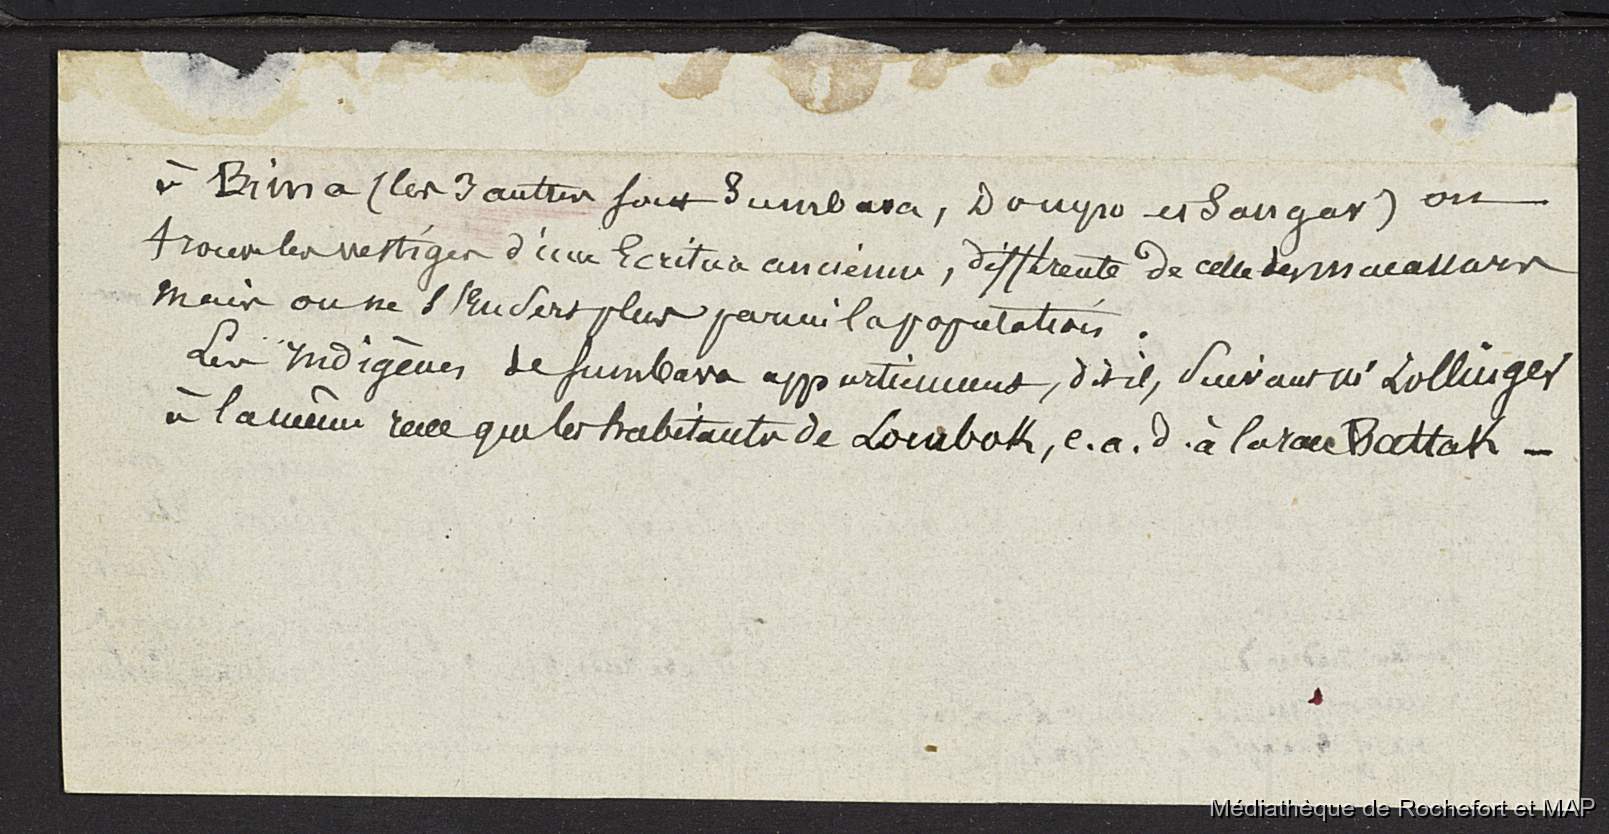 à Bima (les 3 autres sont Sumbava, Dongo et Sangar) on
trouve les vestiges d'une Ecriture ancienne, différente de celle des macassars
mais on ne s'en sert plus parmi la population.
Les Indigènes de Sumbava appartiennent, dit-il, suivant Mr Zollinger
à la même race que les habitants de Lombok, c.a.d. à la race Battak –
Médiathèque de Rochefort et MAP